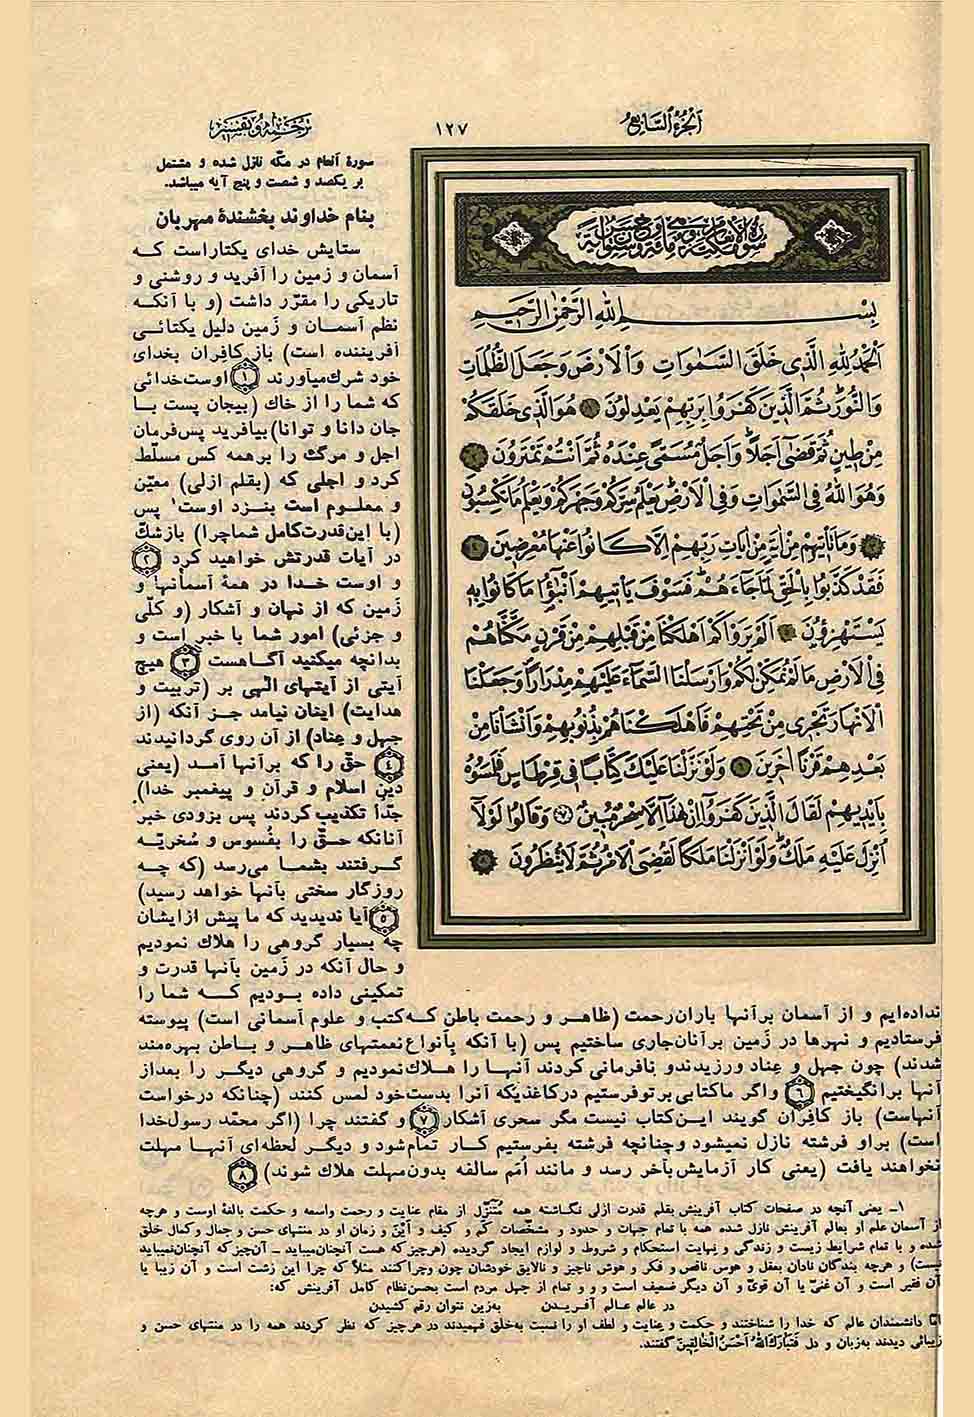 اَلْجُزءُ السَّابِعُ
١٢٧
ترجمه و تفسیر
بِسْمِ اللهِ الرَّحْمٰنِ الرَّحیمِ
اَلْحَمْدُ لِلّهِ الَّذی خَلَقَ السَّمٰوَاتِ وَالْاَرْضَ وَجَعَلَ الظُّلُمَاتِ
وَالنُّورَ ثُمَّ الَّذینَ کَفَرُوا بِرَبِّهِمْ یَعْدِلُونَ هُوَ الَّذی خَلَقَکُمْ
مِنْ طینٍ ثُمَّ قَضٰی اَجَلاً وَاَجَلٌ مُسَمًّی عِنْدَهُ ثُمَّ اَنْتُمْ تَمْتَرُونَ
وَهُوَ اللهُ فِی السَّمٰوَاتِ وَفِی الْاَرْضِ یَعْلَمُ سِرَّکُمْ وَجَهْرَکُمْ وَیَعْلَمُ مَا تَکْسِبُونَ
وَمَا تَأْتیهِمْ مِنْ اٰیَةٍ مِنْ اٰیَاتِ رَبِّهِمْ اِلَّا کَانُوا عَنْهَا مُعْرِضینَ
فَقَدْ کَذَّبُوا بِالْحَقِّ لَمَّا جَاءَهُمْ فَسَوْفَ یَأْتیهِمْ اَنْبٰؤُا مَا کَانُوا بِهِ
یَسْتَهْزِؤُنَ اَلَمْ یَرَوْا کَمْ اَهْلَکْنَا مِنْ قَبْلِهِمْ مِنْ قَرْنٍ مَکَّنَّاهُمْ
فِی الْاَرْضِ مَا لَمْ نُمَکِّنْ لَکُمْ وَاَرْسَلْنَا السَّمَاءَ عَلَیْهِمْ مِدْرَاراً وَجَعَلْنَا
الْاَنْهَارَ تَجْری مِنْ تَحْتِهِمْ فَاَهْلَکْنَاهُمْ بِذُنُوبِهِمْ وَاَنْشَأْنَا مِنْ
بَعْدِهِمْ قَرْناً اٰخَرینَ وَلَوْ نَزَّلْنَا عَلَیْكَ کِتَاباً فی قِرْطَاسٍ فَلَمَسُوهُ
بِاَیْدیهِمْ لَقَالَ الَّذینَ کَفَرُوا اِنْ هٰذَا اِلَّا سِحْرٌ مُبینٌ ٧ وَقَالُوا لَوْلَا
اُنْزِلَ عَلَیْهِ مَلَكٌ وَلَوْ اَنْزَلْنَا مَلَکاً لَقُضِیَ الْاَمْرُ ثُمَّ لَا یُنْظَرُونَ ٨
سورهٔ انعام در مکّه نازل شده و مشتمل
بر یکصد و شصت و پنج آیه میباشد.
بنام خداوند بخشندهٔ مهربان
ستایش خدای یکتاراست که
آسمان و زمین را آفرید و روشنی و
تاریکی را مقرّر داشت (و با آنکه
نظم آسمان و زَمین دلیل یکتائی
آفریننده است) باز کافِران بخدای
خود شرك میآورند ١ اوست خدائی
که شما را از خاك (بیجان پست بـا
جان دانا و توانا) بیافرید پس فرمان
اجل و مرگ را برهمه کس مسلّط
کرد و اجلی که (بقلم ازلی) معیّن
و معلـوم است بنـزد اوست١ پس
(با این قدرت کامل شما چرا) بازشكّ
در آیات قدرتش خواهید کرد ٢
و اوست خدا در همهٔ آسمانها و
زَمین که از نهان و آشکار (و کلّی
و جزئی) امور شما با خبر است و
بدانچه میکنید آگـاهست ٣ هیچ
آیتی از آیتهای الٰهی بر (تربیت و
هدایت) اینان نیامد جـز آنکه (از
جهل و عِناد) از آن روی گردانیدند
٤ حقّ را که برآنها آمـد (یعنی
دین اسلام و قرآن و پیغمبر خدا)
جدّاً تکذیب کردند پس بزودی خبر
آنانکه حـقّ را بِفُسوس و سُخریّـه
گـرفتند بشما می‌رسد (که چـه
روزگار سختی بآنها خواهد رسید)
٥ آیا ندیدید که ما پیش ازایشان
چه بسیار گروهی را هلاك نمودیم
و حال آنکه در زَمین بآنها قدرت و
تمکینی داده بـودیم کـه شما را
نداده‌ایم و از آسمان برآنها باران رحمت (ظاهـر و رحمت باطن کـه کتب و علوم آسمانی است) پیوسته
فرستادیم و نهرها در زَمین برآنان جاری ساختیم پس (با آنکه بِأنواع نعمتهای ظاهر و بـاطن بهره‌مند
شدند) چون جهل و عِناد ورزیدند و نافرمانی کردند آنهـا را هـلاك نمودیم و گروهی دیگـر را بعداز
آنها برانگیختیم ٦ واگر ماکتابی برتو فرستیم درکاغذیکه آنرا بدست خود لمس کنند (چنانکه درخواست
آنهاست) باز کافِران گویند این کتاب نیست مگر سحری آشکار ٧ و گفتند چرا (اگر محمّد رسول خدا
است) براو فرشته نازل نمیشود و چنانچه فرشته بفرستیم کـار تمام شود و دیگـر لحظه‌ای آنهـا مهلت
نخواهند یافت (یعنی کار آزمایش بآخر رسد و مانند اُمَم سالفه بدون مهلت هلاك شوند) ٨
١ـ یعنی آنچه در صفحات کتاب آفرینش بقلم قدرت ازلی نگـاشته همه مُتَنَزِّل از مقام عنایت و رحمت واسعه و حکمت بالغهٔ اوست و هرچه
از آسمان علم او بعالم آفرینش نازل شده همه با تمام جهات و حدود و مشخّصات کَم و کیف و أیْنَ و زمان او در منتهای حسن و جمال و کمال خلق
شده و با تمام شرایط زیست و زندگی و نهایت استحکام و شروط و لوازم ایجاد گردیده (هرچیز که هست آنچنان میباید ـ آن چیز که آنچنان نمیباید
نیست) و هرچه بندگان نادان بعقل و هوس ناقص و فکر و هوش ناچیز و نالایق خودشان چون وچرا کنند مثلاً که چرا این زشت است و آن زیبا یا
آن فقیر است و آن غنیّ یا آن قویّ و آن دیگر ضعیف است و و و تمام از جهل مردم است بحسن نظام کامل آفرینش که:
در عالم عـالـم آفـریـدن   به‌زین نتوان رقم کشیدن
دانشمندان عالم که خدا را شناختند و حکمت و عِنایت و لطف او را نسبت به‌خلق فهمیدند در هرچیز که نظر کردند همه را در منتهای حسن و
زیبائی دیدند به‌زبان و دل فَتَبارَكَ اللهُ اَحْسَنُ الْخالِقینَ گفتند.